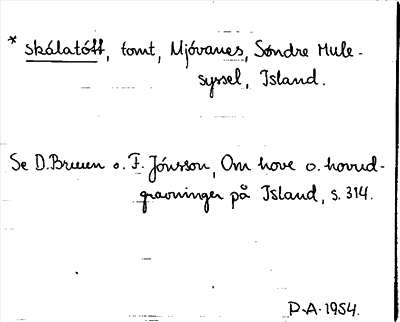 * skálatótt, tomt, Mjóvanes, Søndre Mule-
syssel, Island.
Se D. Bruun o. F. Jónsson, Om hove o. hovud-
gravninger på Island, s. 314.
P.A. 1954.